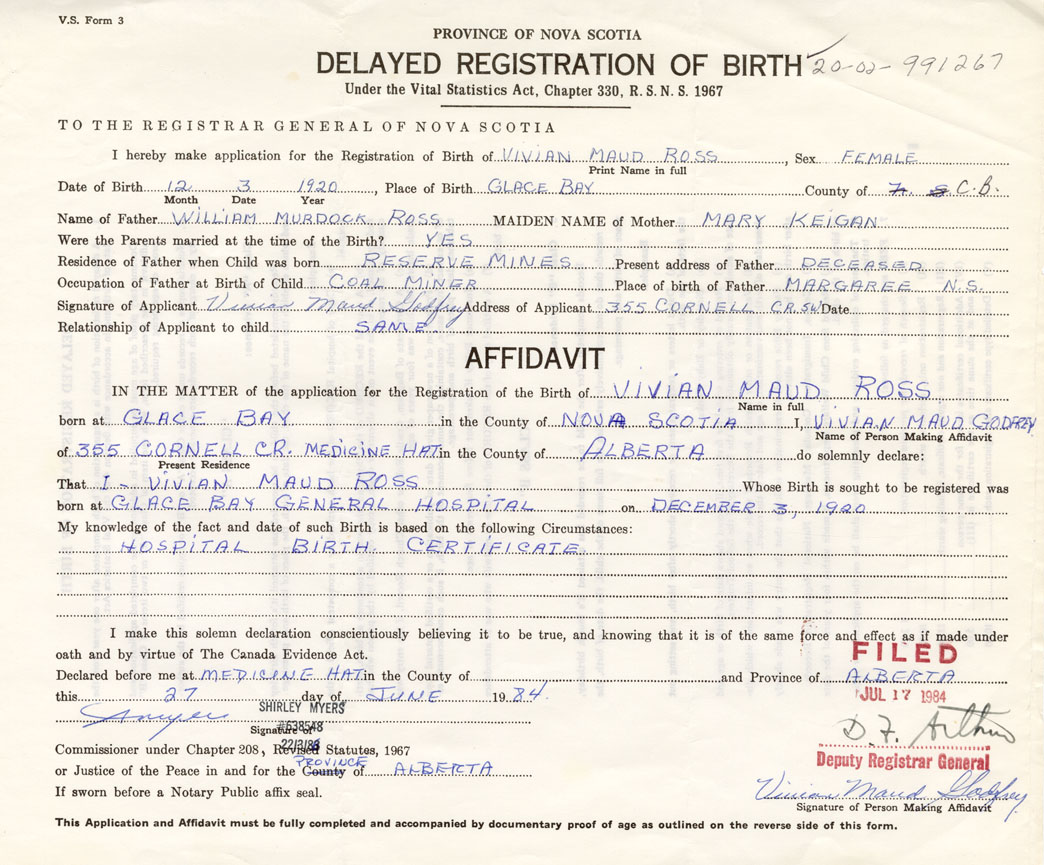 V.S. Form 3
PROVINCE OF NOVA SCOTIA
DELAYED REGISTRATION OF BIRTH 20-02-991267
Under the Vital Statistics Act, Chapter 330, R.S.N.S. 1967
TO THE REGISTRAR GENERAL OF NOVA SCOTIA
I hereby make application for the Registration of Birth of VIVIAN MAUD ROSS, Sex FEMALE
Print Name in full
Date of Birth 12 3 1920, Place of Birth GLACE BAY County of C.B.
Month Date Year
Name of Father WILLIAM MURDOCK ROSS MAIDEN NAME of Mother MARY KEIGAN
Were the Parents married at the time of the Birth? YES
Residence of Father when Child was born RESERVE MINES Present address of Father DECEASED
Occupation of Father at Birth of Child COAL MINER Place of birth of Father MARGAREE N.S.
Signature of Applicant Vivian Maud Godfrey Address of Applicant 355 CORNELL CR. Date
Relationship of Applicant to child SAME
AFFIDAVIT
IN THE MATTER of the application for the Registration of the Birth of VIVIAN MAUD ROSS
Name in full
born at GLACE BAY in the County of NOVA SCOTIA I, VIVIAN MAUD GODFREY
Name of Person Making Affidavit
of 355 CORNELL CR. MEDICINE HAT in the County of ALBERTA do solemnly declare:
Present Residence
That I - VIVIAN MAUD ROSS Whose Birth is sought to be registered was
born at GLACE BAY GENERAL HOSPITAL on DECEMBER 3, 1920
My knowledge of the fact and date of such Birth is based on the following Circumstances:
HOSPITAL BIRTH CERTIFICATE
I make this solemn declaration conscientiously believing it to be true, and knowing that it is of the same force and effect as if made under
oath and by virtue of The Canada Evidence Act.
FILED
Declared before me at MEDICINE HAT in the County of and Province of ALBERTA
this 27 day of JUNE 1984.
JUL 17 1984
SHIRLEY MYERS
Signature of
D. F. Arthur
Commissioner under Chapter 208, Revised Statutes, 1967
Deputy Registrar General
PROVINCE
or Justice of the Peace in and for the County of ALBERTA
If sworn before a Notary Public affix seal.
Vivian Maud Godfrey
Signature of Person Making Affidavit
This Application and Affidavit must be fully completed and accompanied by documentary proof of age as outlined on the reverse side of this form.